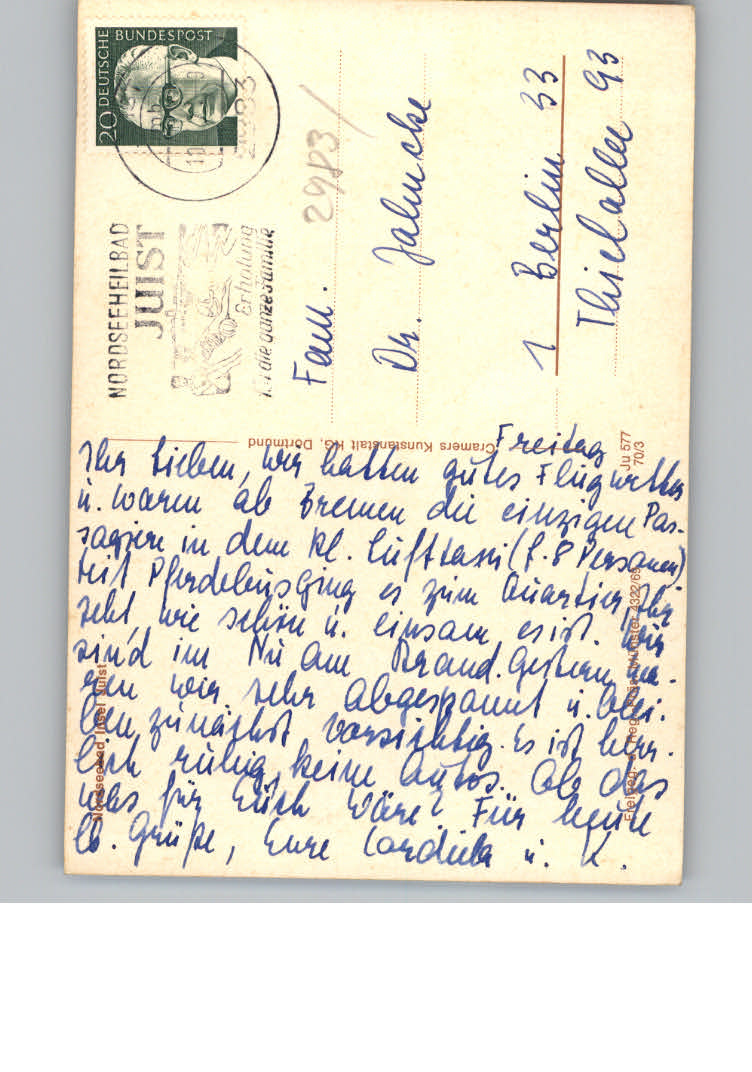 DEUTSCHE BUNDESPOST
20
2983
NORDSEEHEILBAD
JUIST
Erholung
für die ganze Familie
2983/
Fam.
Dr. Jahncke
1 Berlin 33
Thielallee 93
Cramers Kunstanstalt KG, Dortmund
Ju 577
70/3
Nordseebad Insel Juist
4322/69
Freitag
Ihr Lieben, wir hatten gutes Flugwetter
u. waren ab Bremen die einzigen Pas-
sagiere in dem kl. Lufttaxi (f. 8 Personen)
Mit Pferdebus ging es zum Quartier, Ihr
seht, wie schön u. einsam es ist. Wir
sind im Nu am Strand. Gestern wa-
ren wir sehr abgespannt u. blei-
ben zunächst vorsichtig. Es ist herr-
lich ruhig, keine Autos. Ob das
was für Euch wäre? Für heute
lb. Grüße, Eure Cordula u. K.